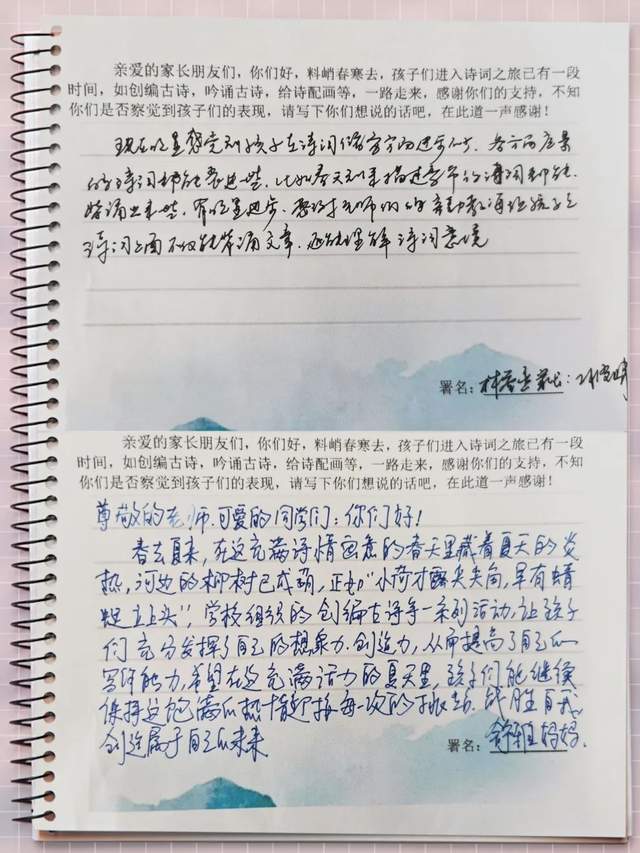 亲爱的家长朋友们，你们好，料峭春寒去，孩子们进入诗词之旅已有一段
时间，如创编古诗，吟诵古诗，给诗配画等，一路走来，感谢你们的支持，不知
你们是否察觉到孩子们的表现，请写下你们想说的话吧，在此道一声感谢！
现在明显感觉到孩子在诗词储备方面进步，各方面应景
的诗词都能表达一些，比如春天到来描述春节的诗词都能
背诵出来些，有明显进步，感谢老师们的辛勤教诲让孩子在
诗词上面不仅能背诵文章，还能理解诗词意境
署名：
亲爱的家长朋友们，你们好，料峭春寒去，孩子们进入诗词之旅已有一段
时间，如创编古诗，吟诵古诗，给诗配画等，一路走来，感谢你们的支持，不知
你们是否察觉到孩子们的表现，请写下你们想说的话吧，在此道一声感谢！
尊敬的老师、可爱的同学们：你们好！
春去夏来，在这充满诗情画意的春天里藏着夏天的炎
热，河边的柳树已成荫，正如"小荷才露尖尖角，早有蜻
蜓立上头"，学校组织的创编古诗等一系列活动，让孩子
们充分发挥了自己的想象力、创造力，从而提高了自己的
写作能力，希望在这充满活力的夏天里，孩子们能继续
保持这饱满的热情迎接每一次的挑战，战胜自我，
创造属于自己的未来
署名：舒雅妈妈